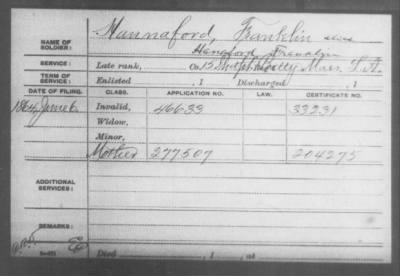 NAME OF SOLDIER: Hannaford, Franklin alias
Hanaford, Franklin
SERVICE: Late rank, Co. 15 Batty Mass. L. A.
TERM OF SERVICE: Enlisted , 1 Discharged , 1
DATE OF FILING. CLASS. APPLICATION NO. LAW. CERTIFICATE NO.
1864 June 6 Invalid, 46633 33231
Widow,
Minor,
Mother 277507 204275
ADDITIONAL SERVICES:
REMARKS:
Died , 1 , at